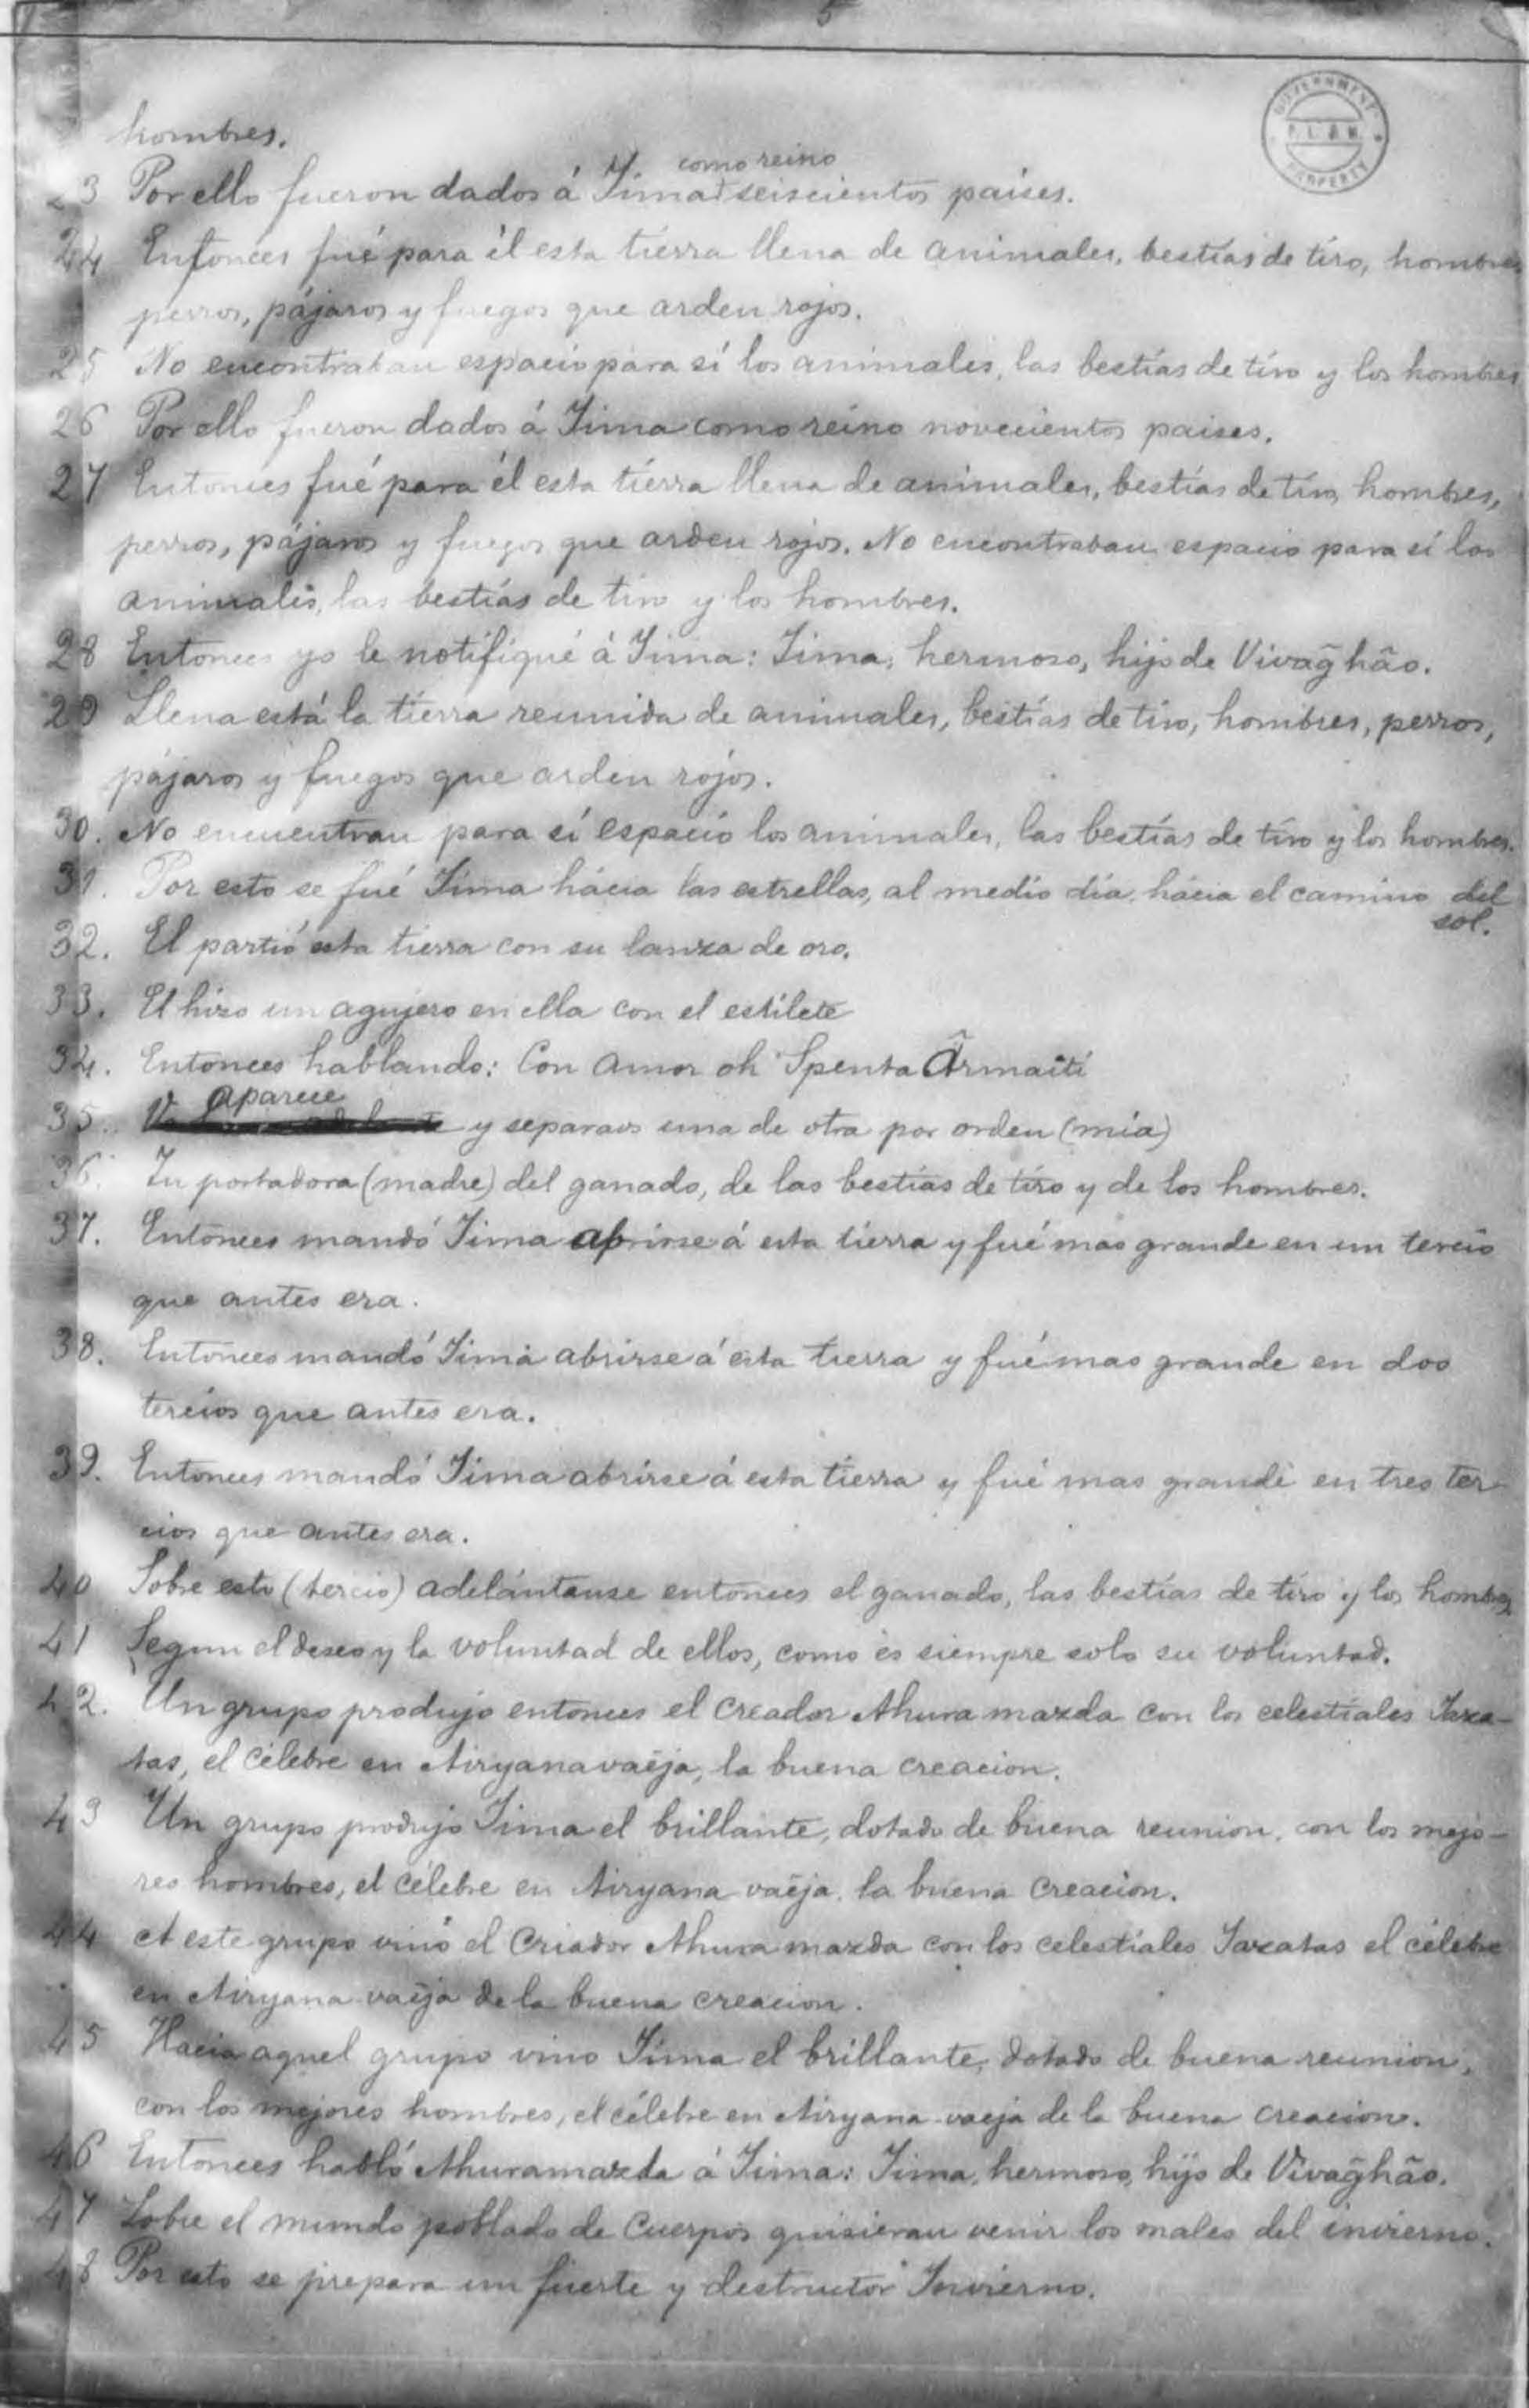 5
GOVERNMENT
P. L. & M.
PROPERTY
hombres.
como reino
23 Por ello fueron dados á Jima seiscientos paises.
24 Entonces fué para él esta tierra llena de animales, bestias de tiro, hombres
perros, pájaros y fuegos que arden rojos.
25 No encontraban espacio para sí los animales, las bestias de tiro y los hombres
26 Por ello fueron dados á Jima como reino novecientos paises.
27 Entonces fué para él esta tierra llena de animales, bestias de tiro, hombres,
perros, pájaros y fuegos que arden rojos. No encontraban espacio para sí los
animales, las bestias de tiro y los hombres.
28 Entonces yo le notifiqué á Jima: Jima, hermoso, hijo de Vivag̃hão.
29 Llena está la tierra reunida de animales, bestias de tiro, hombres, perros,
pájaros y fuegos que arden rojos.
30. No encuentran para sí espacio los animales, las bestias de tiro y los hombres.
31. Por esto se fué Jima hácia las estrellas, al medio dia, hácia el camino del
sol.
32. El partió esta tierra con su lanza de oro.
33. El hizo un agujero en ella con el estilete
34. Entonces hablando: Con amor oh Spenta Ârmaiti
aparece
35. y separaos una de otra por orden (mia)
36. Tu portadora (madre) del ganado, de las bestias de tiro y de los hombres.
37. Entonces mandó Jima abrirse á esta tierra y fué mas grande en un tercio
que antes era.
38. Entonces mandó Jima abrirse á esta tierra y fué mas grande en dos
tercios que antes era.
39. Entonces mandó Jima abrirse á esta tierra y fué mas grande en tres ter-
cios que antes era.
40 Sobre esto (tercio) adelántanse entonces el ganado, las bestias de tiro y los hombres
41 Segun el deseo y la voluntad de ellos, como es siempre solo su voluntad.
42. Un grupo produjo entonces el Creador Ahura mazda con los celestiales Jaza-
tas, el célebre en Airyana vaēja, la buena creacion.
43 Un grupo produjo Jima el brillante, dotado de buena reunion, con los mejo-
res hombres, el célebre en Airyana vaēja, la buena creacion.
44 A este grupo vino el Criador Ahura mazda con los celestiales Jazatas el célebre
en Airyana-vaēja de la buena creacion.
45 Hacia aquel grupo vino Jima el brillante, dotado de buena reunion,
con los mejores hombres, el célebre en Airyana-vaeja de la buena creacion.
46 Entonces habló Ahuramazda á Jima: Jima, hermoso, hijo de Vivag̃hão.
47 Sobre el mundo poblado de cuerpos quisieran venir los males del invierno.
48 Por esto se prepara un fuerte y destructor Invierno.